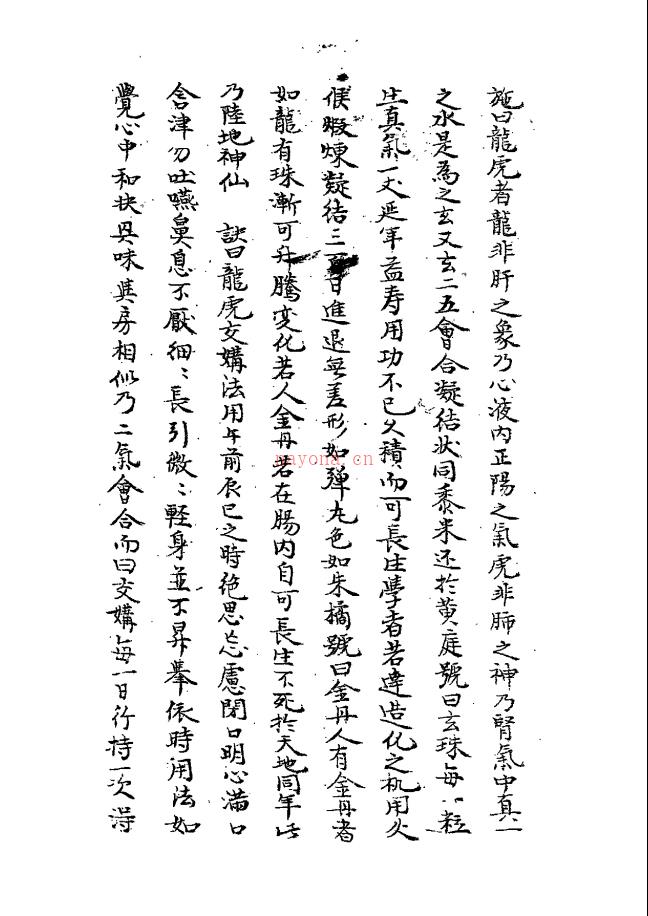 施曰龍虎者龍非肝之象乃心液内正陽之氣虎非肺之神乃腎氣中真一
之水是為之玄又玄二五會合凝結状同黍米还於黄庭號曰玄珠每一粒
生真氣一丈延年益寿用功不已久積而可長生學者若達造化之机用火
候煅煉凝结三百日進退無差形如彈丸色如朱橘號曰金丹人有金丹者
如龍有珠漸可升騰变化若人金丹若在腸内自可長生不死扵天地同年此
乃陸地神仙 訣曰龍虎交媾法用午前辰巳之時绝思忘慮閉口明心滿口
含津勿吐嚥鼻息不厭細〻長引微〻輕身並不昇舉依時用法如
覺心中和快其味與房相似乃二氣會合而曰交媾每一日行持一次得
nayona.cn